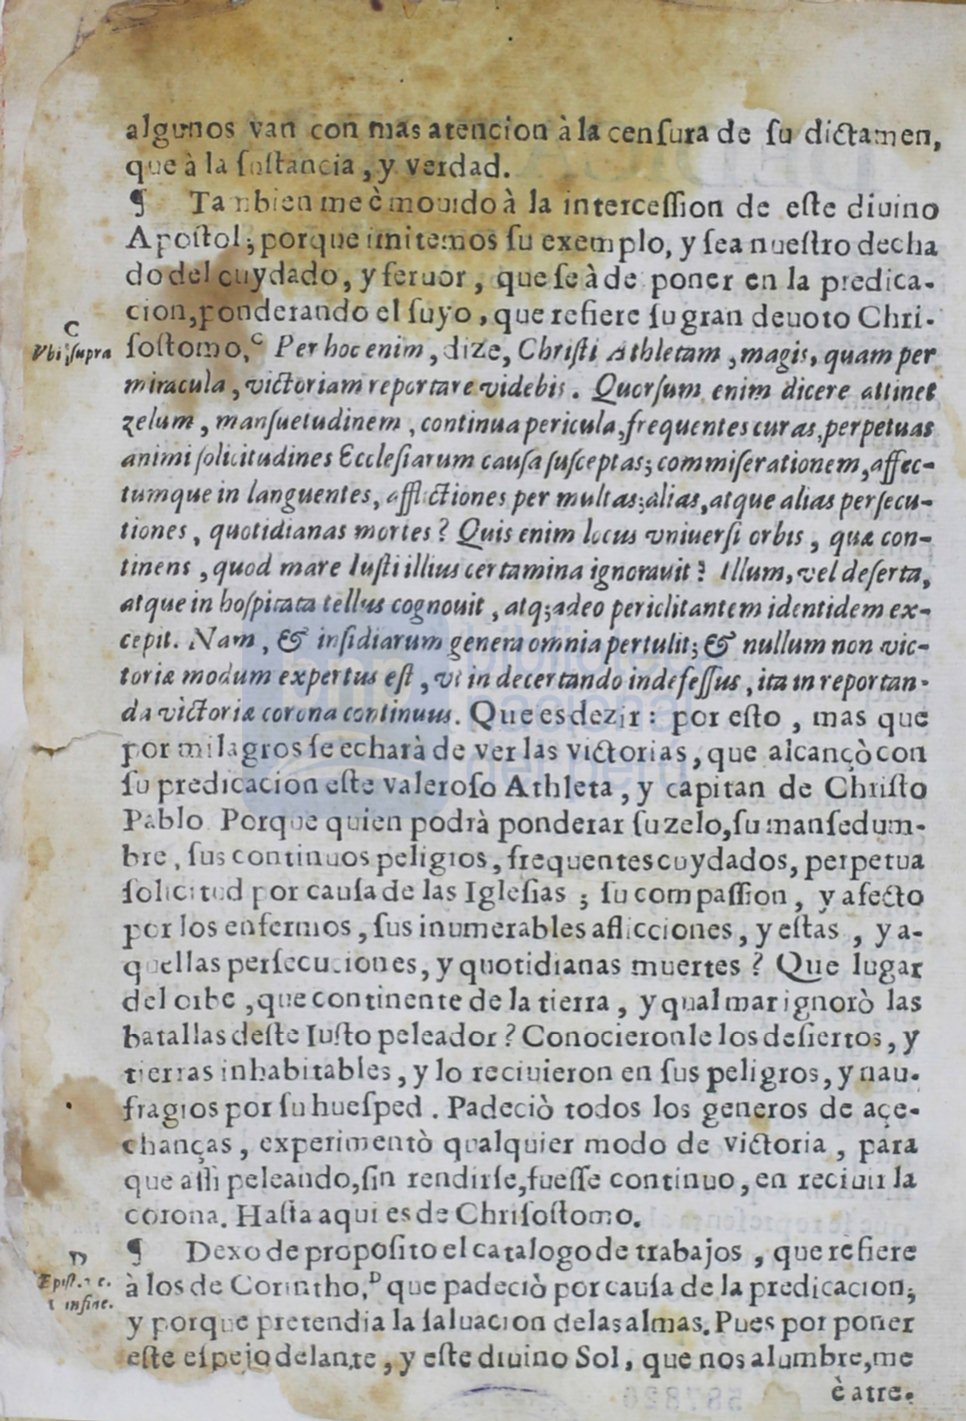 algunos van con mas atencion à la censura de su dictamen,
que à la sustancia, y verdad.
¶ Tambien me è mouido à la intercession de este diuino
Apostol; porque imitemos su exemplo, y sea nuestro decha
do del cuydado, y feruor, que se à de poner en la predica-
cion, ponderando el suyo, que refiere su gran deuoto Chri-
C
Vbi supra
sostomo, C Per hoc enim, dize, Christi Athletam, magis, quam per
miracula, victoriam reportare videbis. Quorsum enim dicere attinet
zelum, mansuetudinem, continua pericula, frequentes curas, perpetuas
animi solicitudines Ecclesiarum causa susceptas; commiserationem, affec-
tumque in languentes, afflictiones per multas; alias, atque alias persecu-
tiones, quotidianas mortes? Quis enim locus vniuersi orbis, quæ con-
tinens, quod mare Iusti illius certamina ignorauit? Illum, vel deserta,
atque in hospitata tellus cognouit, atq; adeo periclitantem identidem ex-
cepit. Nam, & insidiarum genera omnia pertulit; & nullum non vic-
toriæ modum expertus est, vt in decertando indefessus, ita in reportan-
da victoriæ corona continuus. Que es dezir: por esto, mas que
por milagros se echarà de ver las victorias, que alcançò con
su predicacion este valeroso Athleta, y capitan de Christo
Pablo Porque quien podrà ponderar su zelo, su mansedum-
bre, sus continuos peligros, frequentes cuydados, perpetua
solicitud por causa de las Iglesias; su compassion, y afecto
por los enfermos, sus inumerables aflicciones, y estas, y a-
quellas persecuciones, y quotidianas muertes? Que lugar
del orbe, que continente de la tierra, y qual mar ignorò las
batallas deste Iusto peleador? Conocieronle los desiertos, y
tierras inhabitables, y lo reciuieron en sus peligros, y nau-
fragios por su huesped. Padeciò todos los generos de açe-
chanças, experimentò qualquier modo de victoria, para
que assi peleando, sin rendirse, fuesse continuo, en reciuir la
corona. Hasta aqui es de Chrisostomo.
¶ Dexo de proposito el catalogo de trabajos, que refiere
D
Epist. 2 c.
in fine.
à los de Corintho, D que padeciò por causa de la predicacion;
y porque pretendia la saluacion de las almas. Pues por poner
este espejo delante, y este diuino Sol, que nos alumbre, me
è atre-